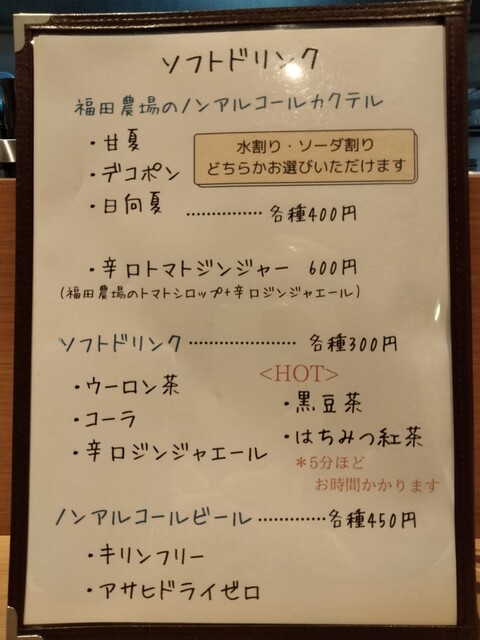 ソフトドリンク
福田農場のノンアルコールカクテル
・甘夏
・デコポン
・日向夏
水割り・ソーダ割り
どちらかお選びいただけます
……………各種400円
・辛口トマトジンジャー 600円
(福田農場のトマトシロップ+辛口ジンジャエール)
ソフトドリンク……………………各種300円
・ウーロン茶
・コーラ
・辛口ジンジャエール
<HOT>
・黒豆茶
・はちみつ紅茶
＊5分ほど
お時間かかります
ノンアルコールビール……………各種450円
・キリンフリー
・アサヒドライゼロ